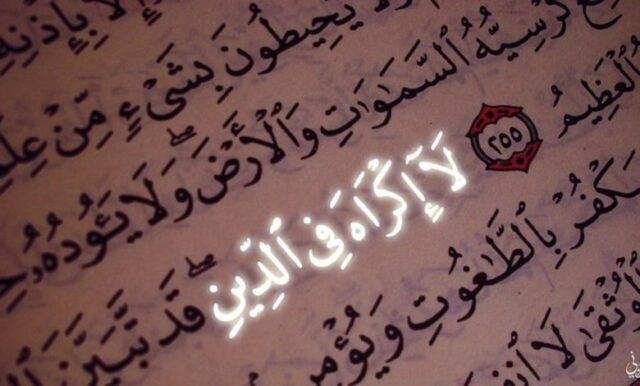 بِإِذْنِهِ
يُحِيطُونَ بِشَىْءٍ مِّنْ عِلْمِ
كُرْسِيُّهُ ٱلسَّمَـٰوَٰتِ وَٱلْأَرْضَ ۖ وَلَا يَـُٔودُهُۥ حِ
ٱلْعَظِيمُ ٢٥٥ لَآ إِكْرَاهَ فِى ٱلدِّينِ ۖ قَد تَّبَيَّنَ ٱل
يَكْفُرْ بِٱلطَّـٰغُوتِ وَيُؤْمِ
ٱلْوُثْقَىٰ لَا ٱنف